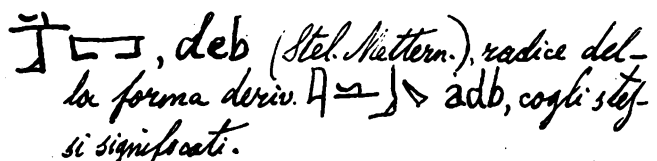 , deb (Stel. Mettern.), radice del-
la forma deriv. adb, cogli stes-
si significati.